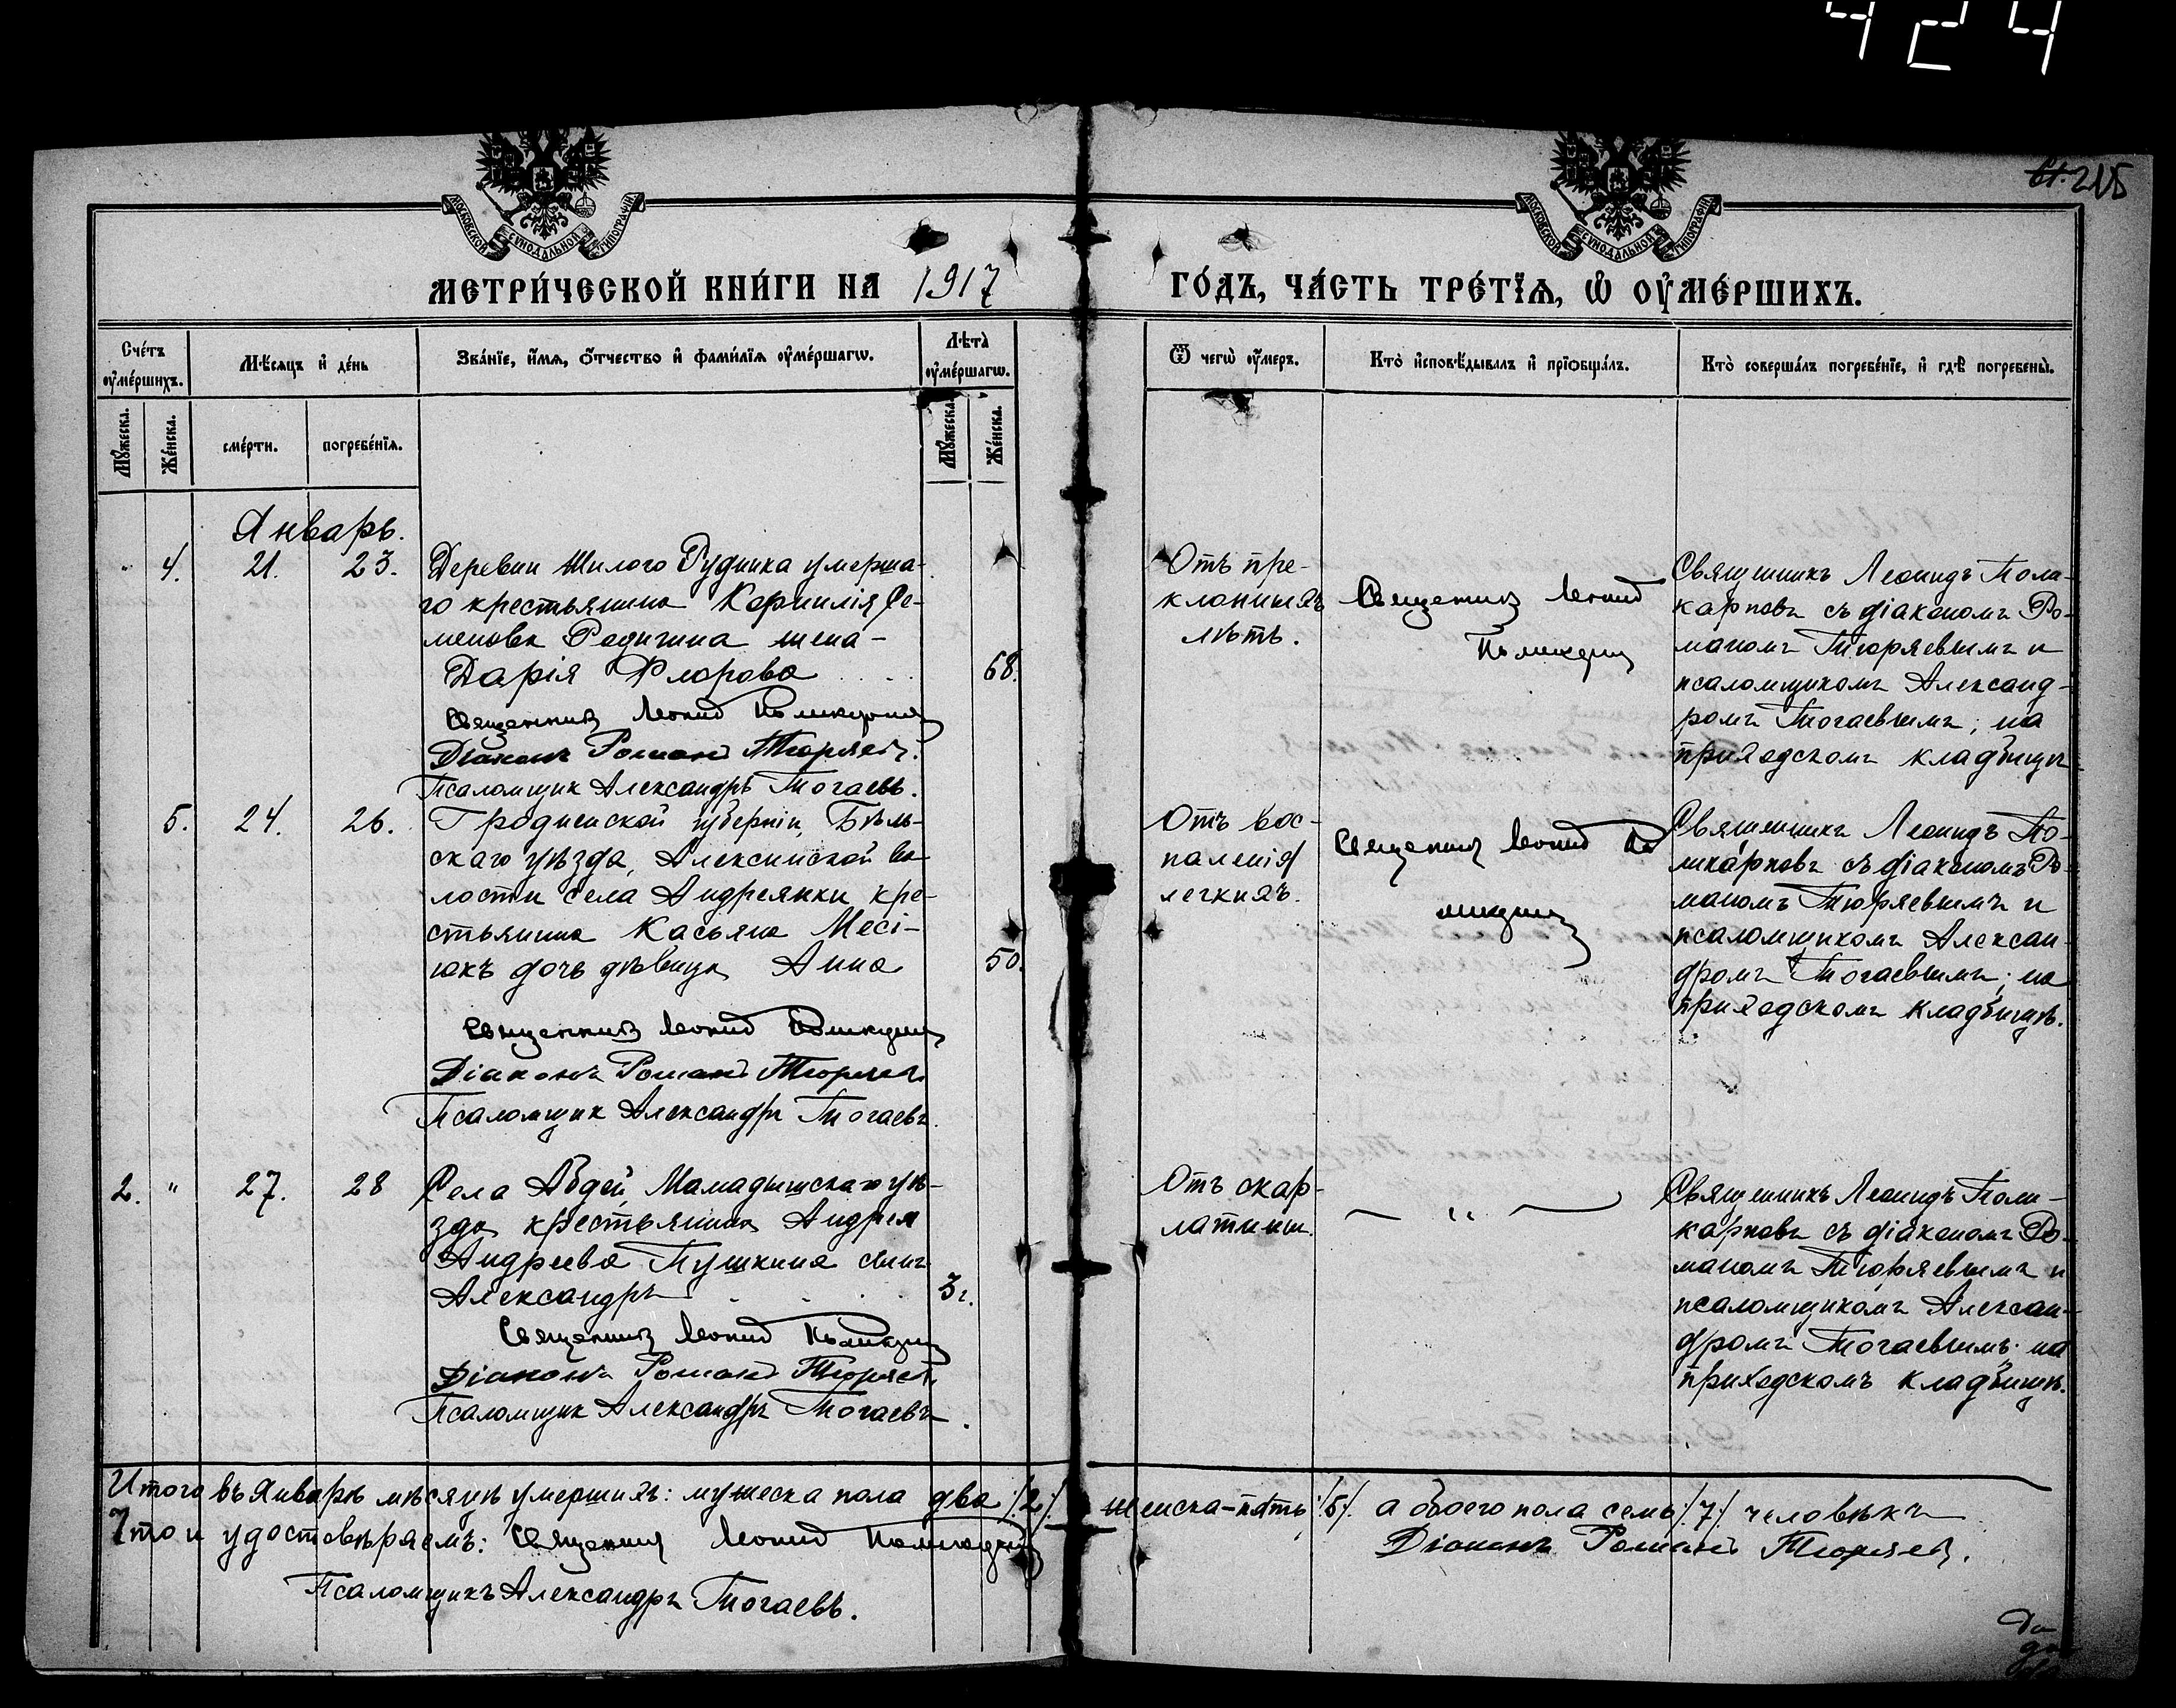 424
215
МОСКОВСКОЙ СѴНОДАЛЬНОЙ ТИПОГРАФІИ
МОСКОВСКОЙ СѴНОДАЛЬНОЙ ТИПОГРАФІИ
МЕТРИ́ЧЕСКОЙ КНИ́ГИ НА 1917 ГО́ДЪ, ЧА́СТЬ ТРЕ́ТЇѦ, Ѡ҆ ОУ҆МЕ́РШИХЪ.
Сче́тъ оу҆ме́ршихъ.
Мѣ́сяцъ и҆ де́нь
Зва́нїе, и҆́мѧ, ѻ҆́тчество и҆ фами́лїѧ оу҆ме́ршагѡ.
Лѣ́та оу҆ме́ршагѡ.
Ѿ чегѡ̀ оу҆́меръ.
Кто̀ и҆сповѣ́дывалъ и҆ прїѻбща́лъ.
Кто̀ соверша́лъ погребе́нїе, и҆ гдѣ̀ погребены̀.
Мꙋ́жеска.
Же́нска.
сме́рти.
погребе́нїѧ.
Мꙋ́жеска.
Же́нска.
Январь.
4. 21. 23.
Деревни Шилого Рудника умерша-
го крестьянина Корнилія Се-
менова Редигина жена-
Дарія Флорова
68.
Священникъ Леонид Поликарпов
Діаконъ Роман Тюряевъ.
Псаломщик Александръ Тогаевъ.
Отъ пре-
клонныхъ
лѣтъ.
Священникъ Леонид
Поликарпов
Священникъ Леонидъ Поли-
карповъ съ діакономъ Ро-
маномъ Тюряевымъ и
псаломщикомъ Александ-
ромъ Тогаевымъ; на
приходскомъ кладбищѣ
5. 24. 26.
Гродненской губерніи, Бѣль-
скаго уѣзда, Алексинской во-
лости села Андреянки кре-
стьянина Касьяна Месі-
юкъ дочь дѣвица Анна
50.
Священникъ Леонид Поликарпов
Діаконъ Роман Тюряевъ
Псаломщик Александръ Тогаевъ.
Отъ вос-
паленія
легкихъ.
Священникъ Леонид По
ликарпов
Священникъ Леонидъ По-
ликарповъ съ діакономъ Ро-
маномъ Тюряевымъ и
псаломщикомъ Алексан-
дромъ Тогаевымъ; на
приходскомъ кладбищѣ.
2. " 27. 28
Села Абдей, Мамадышскаго уѣ-
зда крестьянина Андрея
Андреева Пушкина сынъ
Александръ
3 г.
Священникъ Леонид Поликарпов
Діаконъ Роман Тюряевъ
Псаломщик Александръ Тогаевъ.
Отъ скар-
латины.
— " —
Священникъ Леонидъ Поли-
карповъ съ діакономъ Ро-
маномъ Тюряевымъ и
псаломщикомъ Алексан-
дромъ Тогаевымъ; на
приходскомъ кладбищѣ.
Итого въ Январѣ мѣсяцѣ умершихъ: мужеска пола два /:2:/ женска-пять /:5:/ а обоего пола семь /:7:/ человѣкъ
Что и удостовѣряемъ: Священникъ Леонид Поликарпов Діаконъ Роман Тюряевъ.
Псаломщикъ Александръ Тогаевъ.